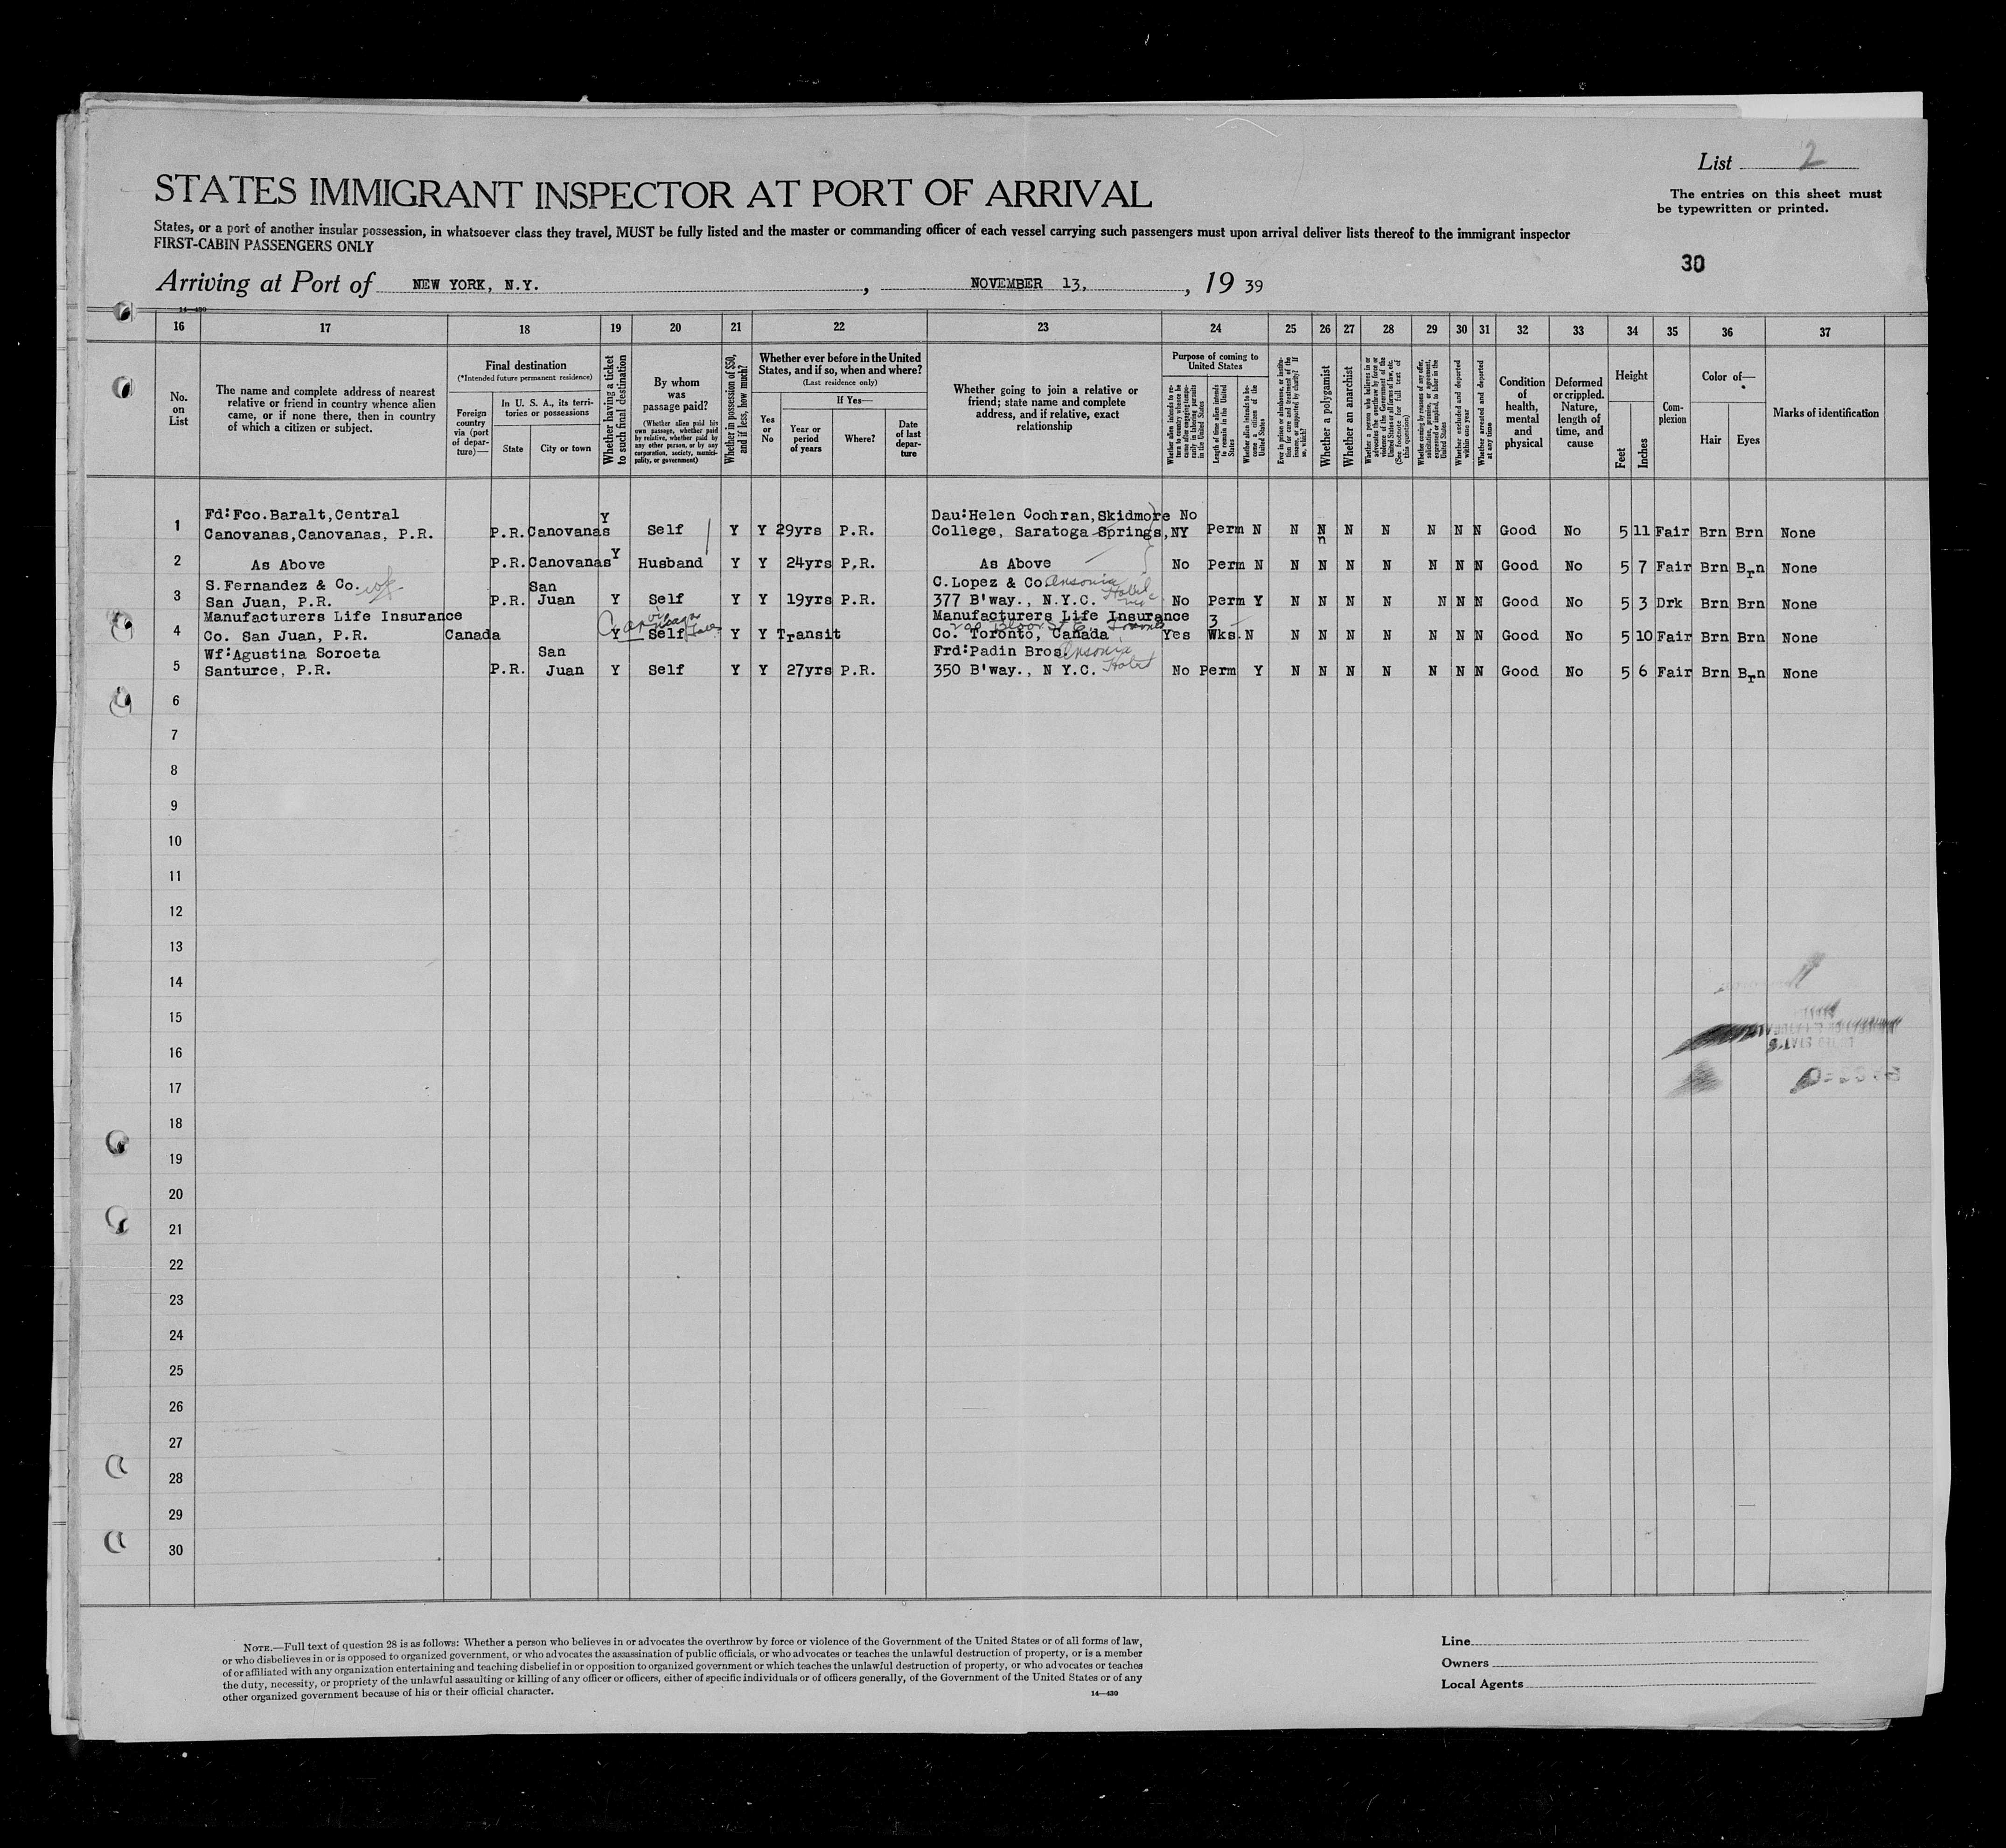 List 2
STATES IMMIGRANT INSPECTOR AT PORT OF ARRIVAL
The entries on this sheet must
be typewritten or printed.
States, or a port of another insular possession, in whatsoever class they travel, MUST be fully listed and the master or commanding officer of each vessel carrying such passengers must upon arrival deliver lists thereof to the immigrant inspector
FIRST-CABIN PASSENGERS ONLY
30
Arriving at Port of NEW YORK, N.Y. , NOVEMBER 13, , 19 39
14—430
16 17 18 19 20 21 22 23 24 25 26 27 28 29 30 31 32 33 34 35 36 37
No. on List
The name and complete address of nearest relative or friend in country whence alien came, or if none there, then in country of which a citizen or subject.
Final destination
(*Intended future permanent residence)
Foreign country via (port of departure)—
In U. S. A., its territories or possessions
State
City or town
Whether having a ticket to such final destination
By whom was passage paid?
(Whether alien paid his own passage, whether paid by relative, whether paid by any other person, or by any corporation, society, municipality, or government)
Whether in possession of $50, and if less, how much?
Whether ever before in the United States, and if so, when and where?
(Last residence only)
Yes or No
If Yes—
Year or period of years
Where?
Date of last departure
Whether going to join a relative or friend; state name and complete address, and if relative, exact relationship
Purpose of coming to United States
Whether alien intends to return to country whence he came after engaging temporarily in laboring pursuits in the United States
Length of time alien intends to remain in the United States
Whether alien intends to become a citizen of the United States
Ever in prison or almshouse, or institution for care and treatment of the insane, or supported by charity? If so, which?
Whether a polygamist
Whether an anarchist
Whether a person who believes in or advocates the overthrow by force or violence of the Government of the United States or all forms of law, etc. (See footnote for full text of this question)
Whether coming by reasons of any offer, solicitation, promise, or agreement, expressed or implied, to labor in the United States
Whether excluded and deported within one year
Whether arrested and deported at any time
Condition of health, mental and physical
Deformed or crippled. Nature, length of time, and cause
Height
Feet
Inches
Complexion
Color of—
Hair
Eyes
Marks of identification
1 Fd:Fco.Baralt,Central Canovanas,Canovanas, P.R. P.R. Canovanas Y Self Y Y 29yrs P.R. Dau:Helen Cochran,Skidmore College, Saratoga Springs,NY No Perm N N N n N N N N N Good No 5 11 Fair Brn Brn None
2 As Above P.R. Canovanas Y Husband Y Y 24yrs P.R. As Above No Perm N N N N N N N N Good No 5 7 Fair Brn Brn None
3 S.Fernandez & Co. San Juan, P.R. P.R. San Juan Y Self Y Y 19yrs P.R. C.Lopez & Co Ansonia Hotel 377 B'way., N.Y.C. No Perm Y N N N N N N N Good No 5 3 Drk Brn Brn None
4 Manufacturers Life Insurance Co. San Juan, P.R. Canada Y via Niagara Falls Self Y Y Transit Manufacturers Life Insurance 200 Bloor St E. Toronto Co. Toronto, Canada Yes 3 Wks. N N N N N N N N Good No 5 10 Fair Brn Brn None
5 Wf:Agustina Soroeta Santurce, P.R. P.R. San Juan Y Self Y Y 27yrs P.R. Frd:Padin Bros. Ansonia Hotel 350 B'way., N Y.C. No Perm Y N N N N N N N Good No 5 6 Fair Brn Brn None
6
7
8
9
10
11
12
13
14
15
16
17
18
19
20
21
22
23
24
25
26
27
28
29
30
NOTE.—Full text of question 28 is as follows: Whether a person who believes in or advocates the overthrow by force or violence of the Government of the United States or of all forms of law,
or who disbelieves in or is opposed to organized government, or who advocates the assassination of public officials, or who advocates or teaches the unlawful destruction of property, or is a member
of or affiliated with any organization entertaining and teaching disbelief in or opposition to organized government or which teaches the unlawful destruction of property, or who advocates or teaches
the duty, necessity, or propriety of the unlawful assaulting or killing of any officer or officers, either of specific individuals or of officers generally, of the Government of the United States or of any
other organized government because of his or their official character.
14—430
Line
Owners
Local Agents